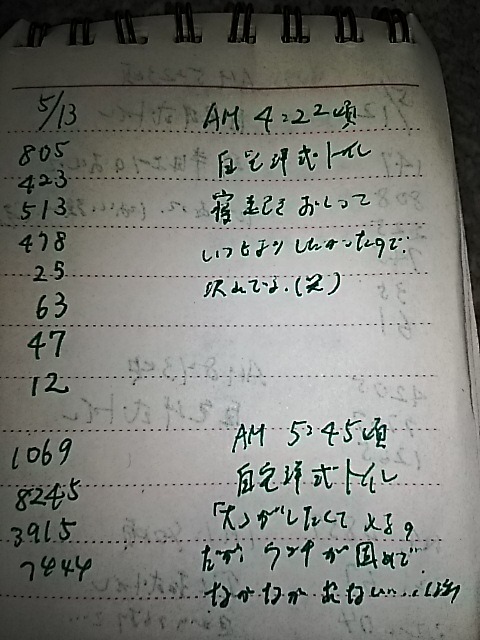 5/13 AM 4:22頃
805 自宅洋式トイレ
423
513 寝起き おしって
478 いつもより したかったので
25
63 (笑)
47
12
AM 5:45頃
1069 自宅洋式トイレ
8245 「大」がしたくて
3915 だが ウンチが固めで
7444 なかなか出ない…